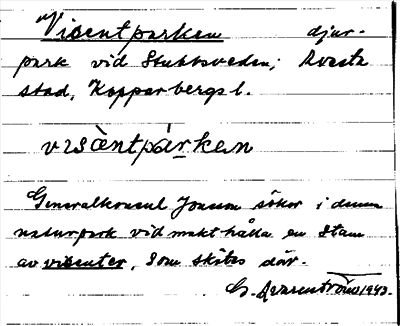 "Visentparken djur-
park vid Stubbsveden; Avesta
stad, Kopparbergs l.
visèntpárken
Generalkonsul Jonson söker i denna
naturpark vidmakthålla en stam
av visenter, som skötes där.
G. 1943.